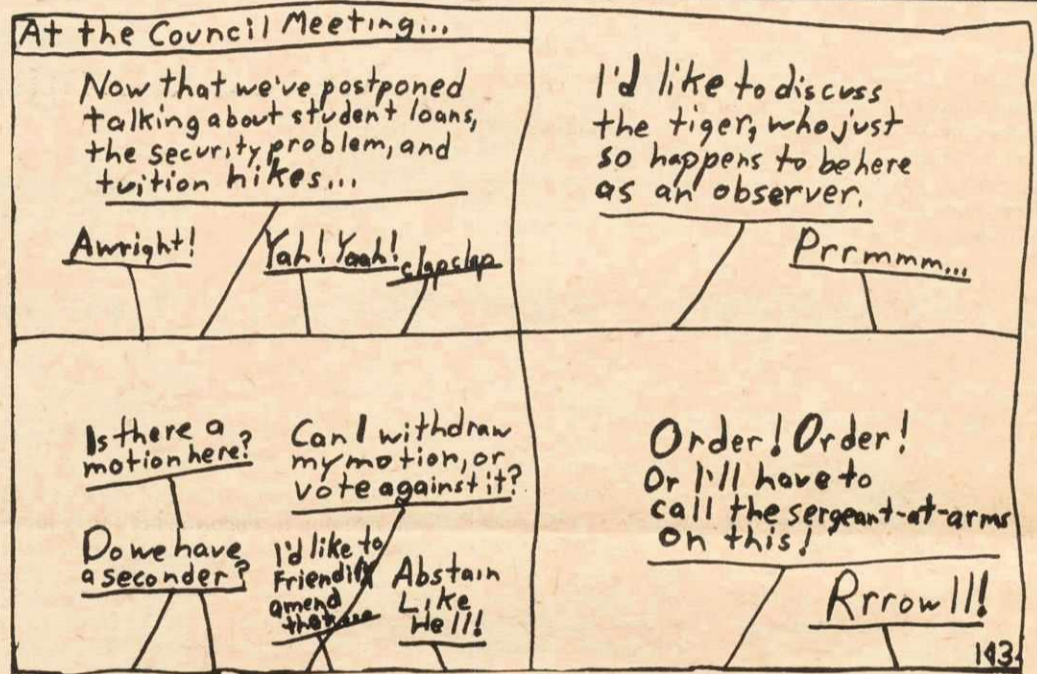 At the Council Meeting...
Now that we've postponed
talking about student loans,
the security problem, and
tuition hikes...
Awright!
Yah! Yaah!
clapclap
I'd like to discuss
the tiger, who just
so happens to be here
as an observer.
Prrmmm...
Is there a
motion here?
Can I withdraw
my motion, or
vote against it?
Do we have
a seconder?
I'd like to
Friendily
amend
that...
Abstain
Like
Hell!
Order! Order!
Or I'll have to
call the sergeant-at-arms
on this!
Rrrowll!
143